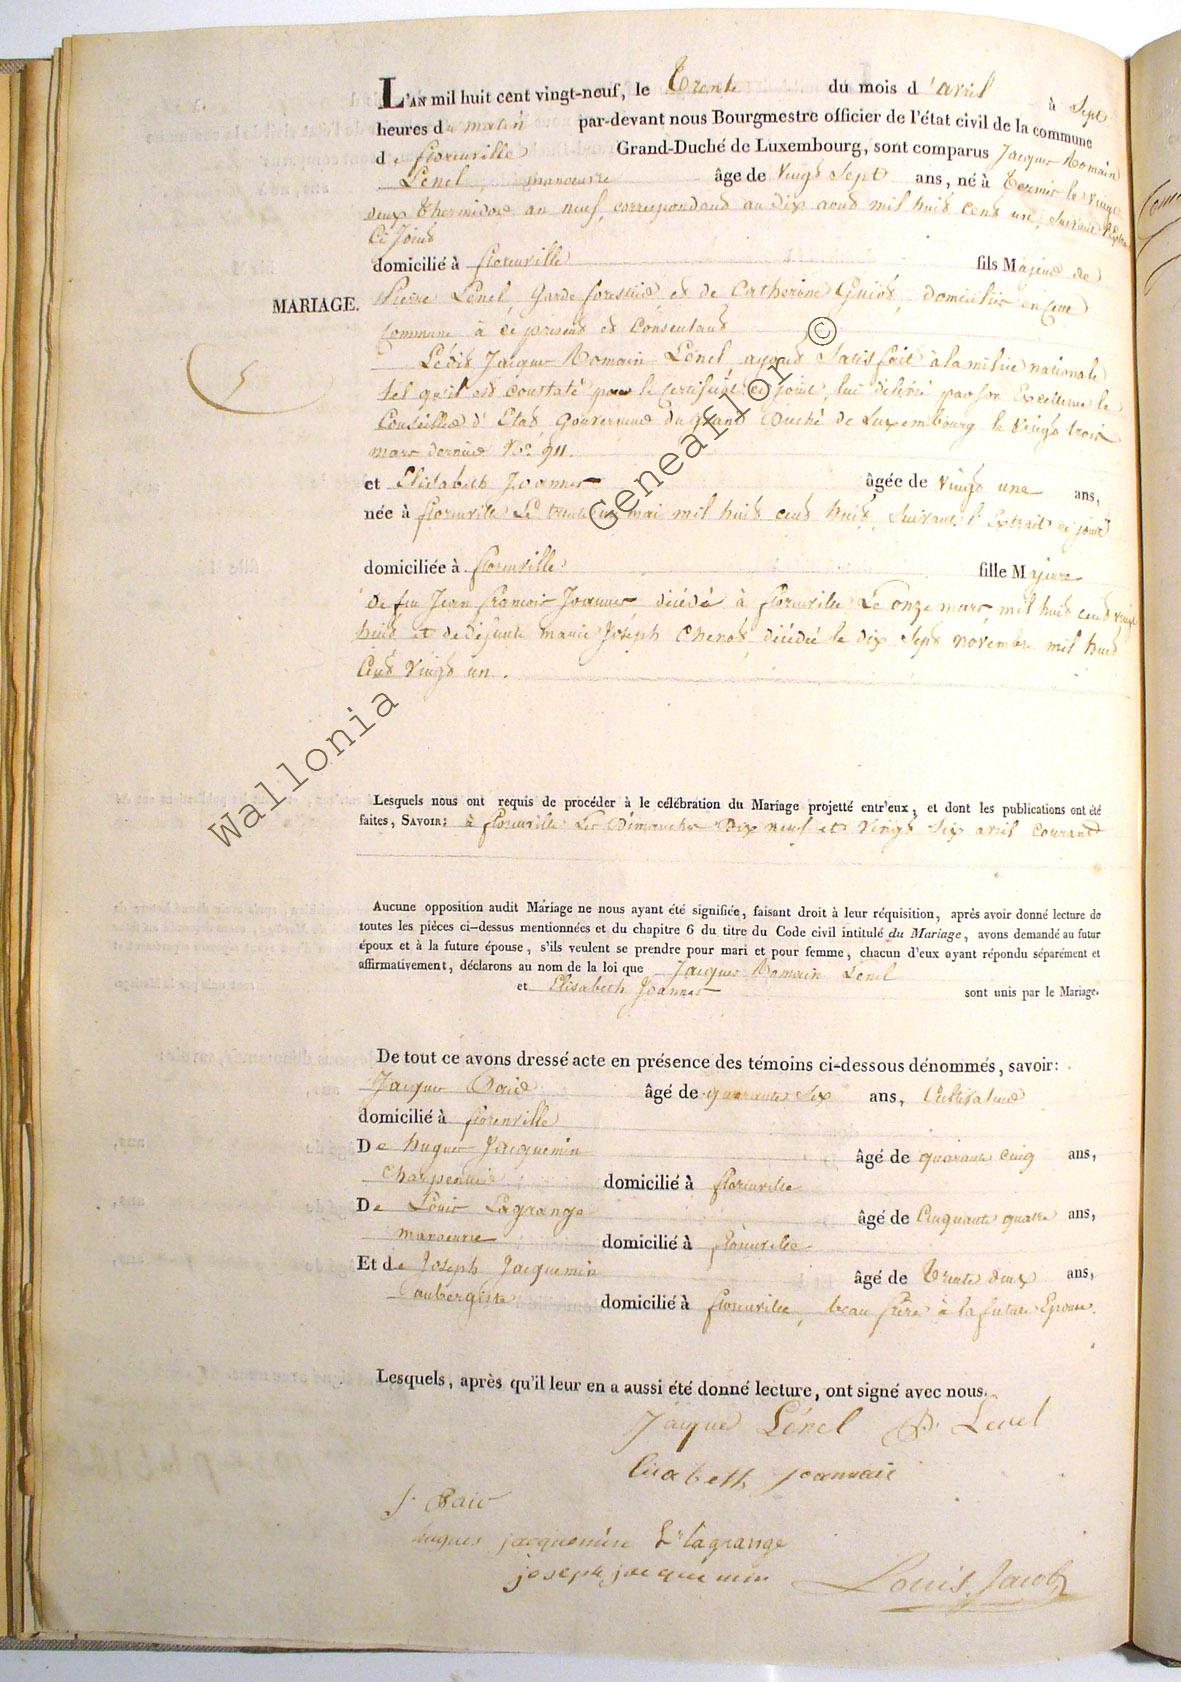 L'AN mil huit cent vingt-neuf, le Trente du mois d'avril à Sept
heures du matin par-devant nous Bourgmestre officier de l'état civil de la commune
de florenville Grand-Duché de Luxembourg, sont comparus Jacques Romain
Lénel, manoeuvre âge de vingt Sept ans, né à Termes le vingt
deux thermidor an neuf, correspondant au dix aout mil huit cent un, suivant
ci joint
domicilié à florenville fils Majeur de
MARIAGE.
Pierre Lénel, Garde forestier et de Catherine Guiot, Domiciliés en cette
commune à ce présens et Consentans
5
Ledit Jacques Romain Lénel ayant Satisfait à la milice nationale
tel qu'il est constaté par le certificat ci joint, lui délivré par Son Excellence le
Conseiller d'Etat Gouverneur du grand Duché de Luxembourg le vingt trois
mars dernier No. 911.
et Elisabeth Joannes âgée de vingt une ans,
née à florenville Le trente un mai mil huit cent huit, Suivant l'Extrait ci joint
domiciliée à florenville fille Majeure
De feu Jean francois Joannes décédé à florenville Le onze mars mil huit cent vingt
huit et de défunte marie Joseph Chenot, décédée le dix Sept novembre mil huit
Cent vingt un.
Lesquels nous ont requis de procéder à le célébration du Mariage projetté entr'eux, et dont les publications ont été
faites, SAVOIR: à florenville Les Dimanches Dix neuf et vingt Six avril courant
Aucune opposition audit Mariage ne nous ayant été signifiée, faisant droit à leur réquisition, après avoir donné lecture de
toutes les pièces ci-dessus mentionnées et du chapitre 6 du titre du Code civil intitulé du Mariage, avons demandé au futur
époux et à la future épouse, s'ils veulent se prendre pour mari et pour femme, chacun d'eux ayant répondu séparément et
affirmativement, déclarons au nom de la loi que Jacques Romain Lénel
et Elisabeth Joannes sont unis par le Mariage.
De tout ce avons dressé acte en présence des témoins ci-dessous dénommés, savoir:
Jacques âgé de quarante Six ans, Cultivateur
domicilié à florenville
De hugues Jacquemin âgé de quarante cinq ans,
Charpentier domicilié à florenville
De Louis Lagrange âgé de Cinquante quatre ans,
manoeuvre domicilié à florenville
Et de Joseph Jacquemin âgé de Trente deux ans,
aubergiste domicilié à florenville, beau frère à la future Epouse.
Lesquels, après qu'il leur en a aussi été donné lecture, ont signé avec nous.
Jaque Lénel P. Lenel
Elisabeth
J.
hugues jacquemin Ls lagrange
joseph jacquemin Louis Jacob
Wallonia Geneaflor ©